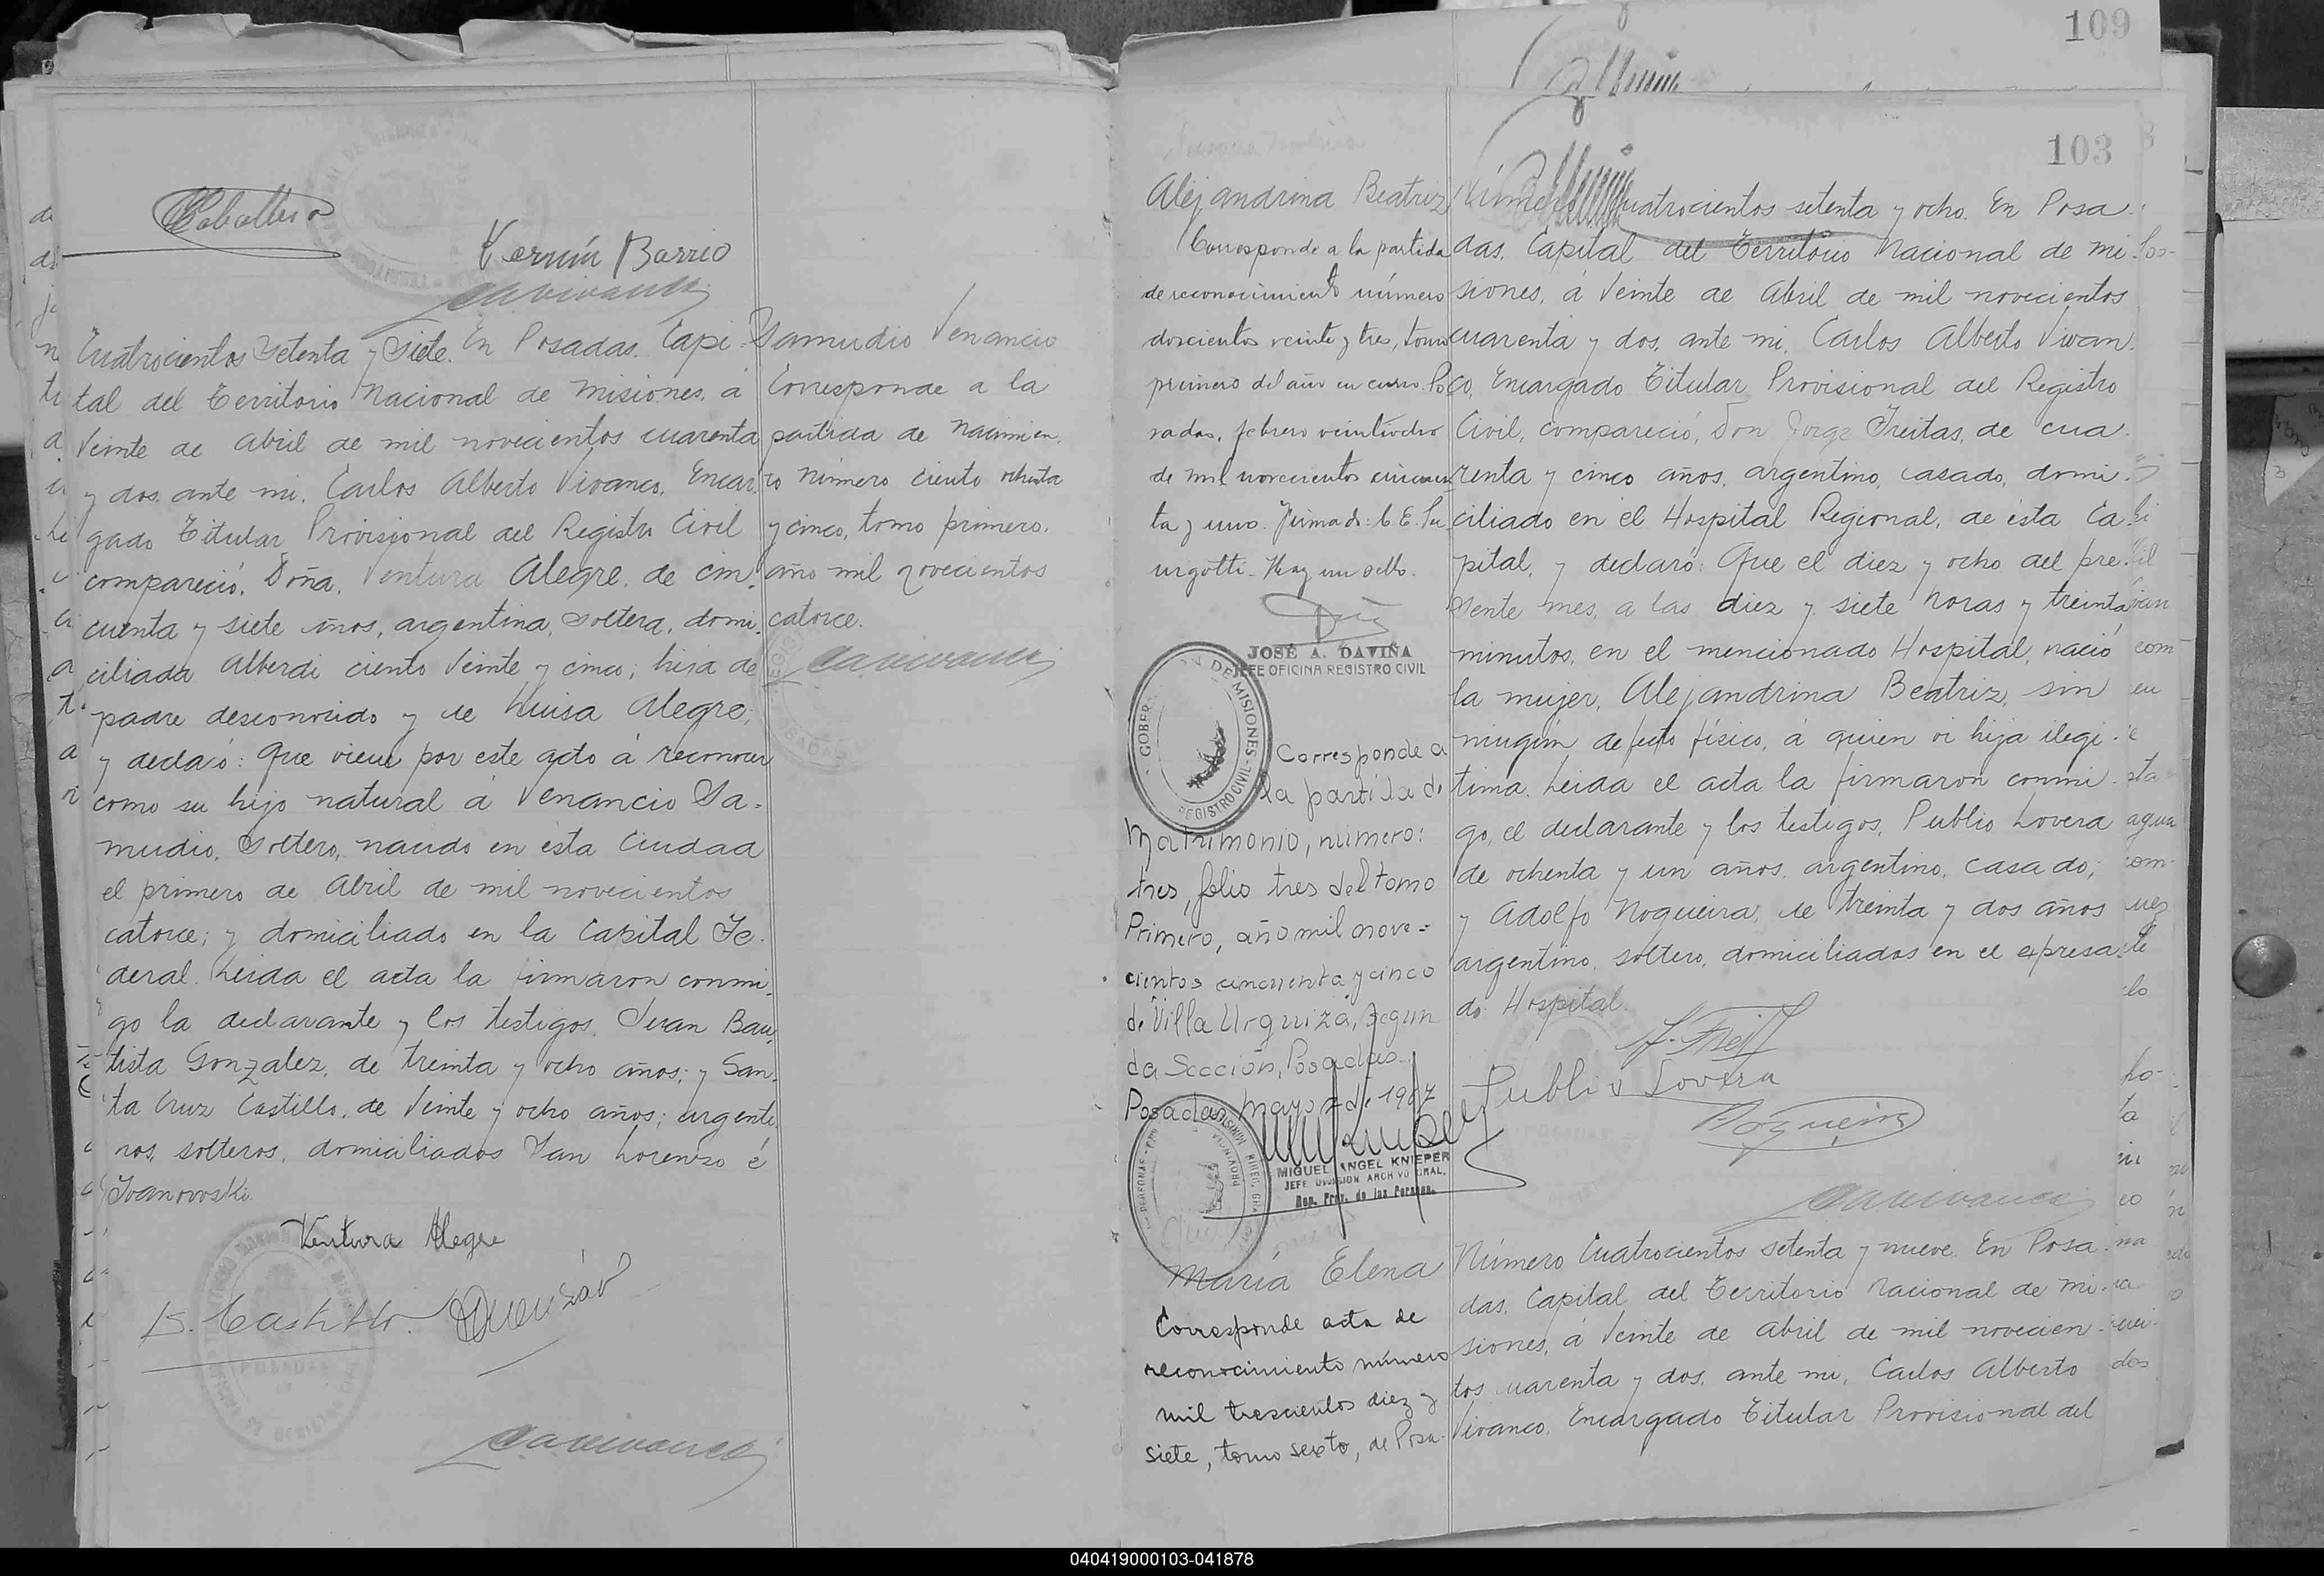 Caballero
Fermín Barrio
Cuatrocientos Setenta y Siete. En Posadas. Capi-
tal del Territorio Nacional de Misiones, á
Veinte de Abril de mil novecientos cuarenta
y dos, ante mi, Carlos Alberto Vivanco, Encar-
gado Titular Provisional del Registro Civil
compareció, Doña, Ventura Alegre, de cin-
cuenta y siete años, argentina, soltera, domi-
ciliada Alberdi ciento Veinte y cinco; hija de
padre desconocido y de Luisa Alegre;
y declaró: Que viene por este acto á reconocer
como su hijo natural á Venancio Sa-
mudio, Soltero, nacido en esta Ciudad
el primero de Abril de mil novecientos
catorce; y domiciliado en la Capital Fe-
deral. Leida el acta la firmaron conmi-
go la declarante y los testigos, Juan Bau-
tista Gonzalez, de treinta y ocho años; y San-
ta Cruz Castillo, de Veinte y ocho años; argenti-
nos, solteros, domiciliados San Lorenzo é
Ivanovoski.
Ventura Alegre
S. Castillo
Samudio Venancio
Corresponde a la
partida de nacimien-
to número ciento ochenta
y cinco, tomo primero.
año mil novecientos
catorce.
109
103
Alejandrina Beatriz
Corresponde a la partida
de reconocimiento número
doscientos veinte y tres, tomo
primero del año en curso. Po-
sadas, febrero veintiocho
de mil novecientos cincuen-
ta y uno. Firmado: C. E. Pu
urgotti - Hay un sello.
JOSE A. DAVIÑA
JEFE OFICINA REGISTRO CIVIL
GOBER. DE MISIONES - REGISTRO CIVIL
Corresponde a
la partida de
Matrimonio, número:
tres, folio tres del tomo
Primero, año mil nove=
cientos cincuenta y cinco
de Villa Urquiza, Segun
da Sección, Posadas.-
Posadas, mayo 2 de 1967
MIGUEL ANGEL KNIEPER
JEFE DIVISION ARCHIVO GRAL.
Reg. Prov. de las Personas
Número Cuatrocientos setenta y ocho. En Posa-
das, Capital del Territorio Nacional de Mi-
siones, á Veinte de Abril de mil novecientos
cuarenta y dos, ante mi, Carlos Alberto Vivan-
co, Encargado Titular Provisional del Registro
Civil, compareció, Don Jorge Freitas, de cua-
renta y cinco años, argentino, casado, domi-
ciliado en el Hospital Regional, de ésta Ca-
pital, y declaró: Que el diez y ocho del pre-
sente mes, a las diez y siete horas y treinta
minutos, en el mencionado Hospital, nació
la mujer, Alejandrina Beatriz, sin
ningún defecto físico, á quien vi hija ilegi-
tima. Leida el acta la firmaron conmi-
go, el declarante y los testigos, Publio Lovera
de ochenta y un años, argentino, casado;
y Adolfo Nogueira, de treinta y dos años
argentino, soltero, domiciliados en el expresa-
do Hospital.
Publio Lovera
Nogueira
María Elena
Corresponde acta de
reconocimiento número
mil trescientos diez y
siete, tomo sexto, de Posa-
Número Cuatrocientos setenta y nueve. En Posa-
das, Capital del Territorio Nacional de Mi-
siones, á Veinte de Abril de mil novecien-
tos cuarenta y dos, ante mi, Carlos Alberto
Vivanco, Encargado Titular Provisional del
040419000103-041878